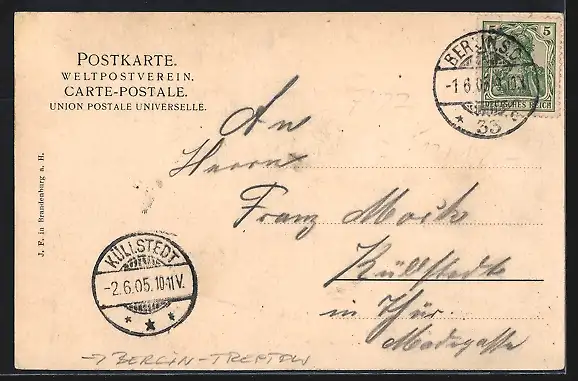 POSTKARTE.
WELTPOSTVEREIN.
CARTE-POSTALE.
UNION POSTALE UNIVERSELLE.
5
DEUTSCHES REICH
BERLIN S.O.
-1.6.05.
* 33
An
Herrn
Franz Mock
Küllstedt
in Thür.
J. F. in Brandenburg a. H.
KÜLLSTEDT
-2.6.05.10-11V.
* * *
→ BERLIN-TREPTOW